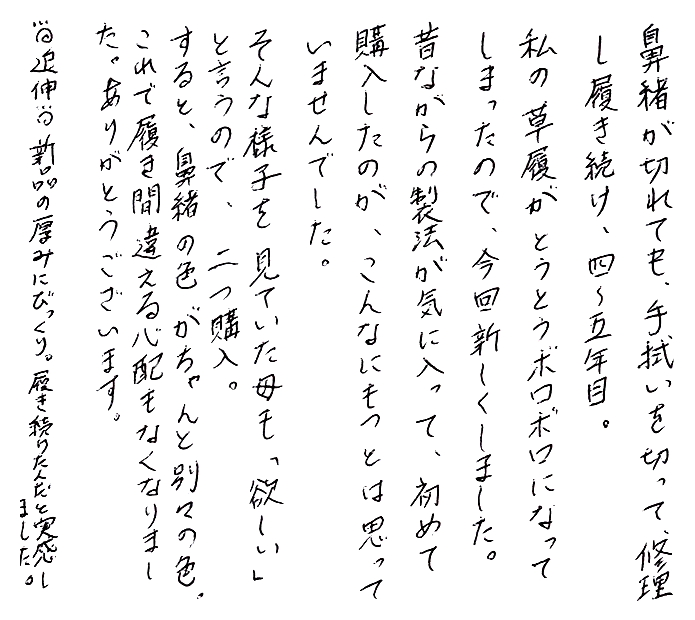 鼻緒が切れても、手拭いを切って、修理
し履き続け、四〜五年目。
私の草履がとうとうボロボロになって
しまったので、今回新しくしました。
昔ながらの製法が気に入って、初めて
購入したのが、こんなにもつとは思って
いませんでした。
そんな様子を見ていた母も「欲しい」
と言うので、二つ購入。
すると、鼻緒の色がちゃんと別々の色。
これで履き間違える心配もなくなりまし
た。ありがとうございます。
追伸 新品の厚みにびっくり。履き続けたんだと実感し
ました。